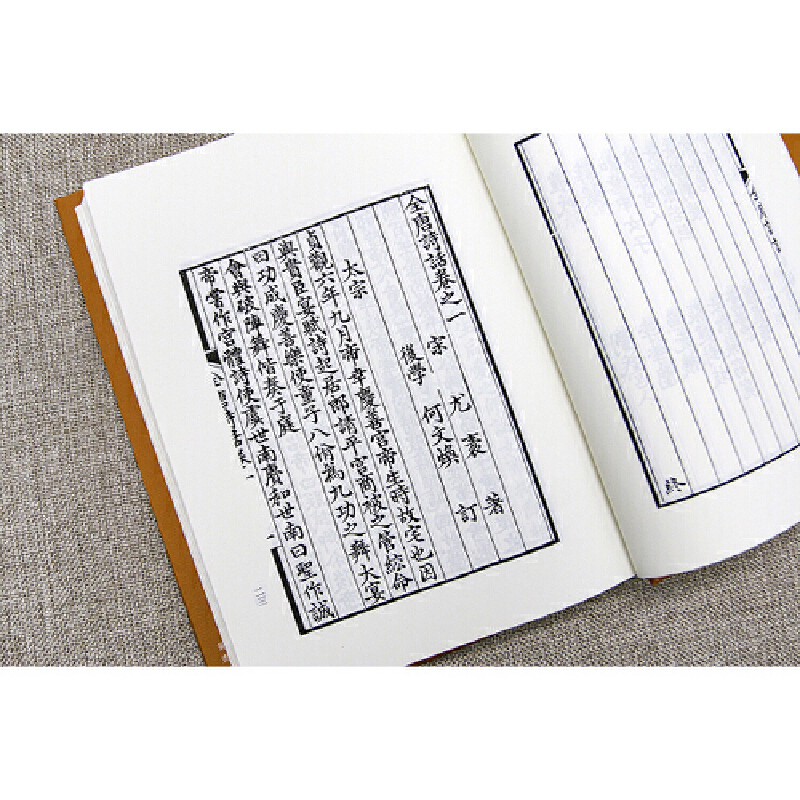 終
全唐詩話卷之一
宋 尤袤 著
後學 何文煥 訂
太宗
貞觀六年九月帝幸慶善宮帝生時故宅也因
與貴臣宴賦詩起居郎請平宮商被之管絃命
曰功成慶善樂使童子八佾為九功之舞大宴
會與破陣舞偕奏于庭
帝嘗作宮體詩使虞世南賡和世南曰聖作誠